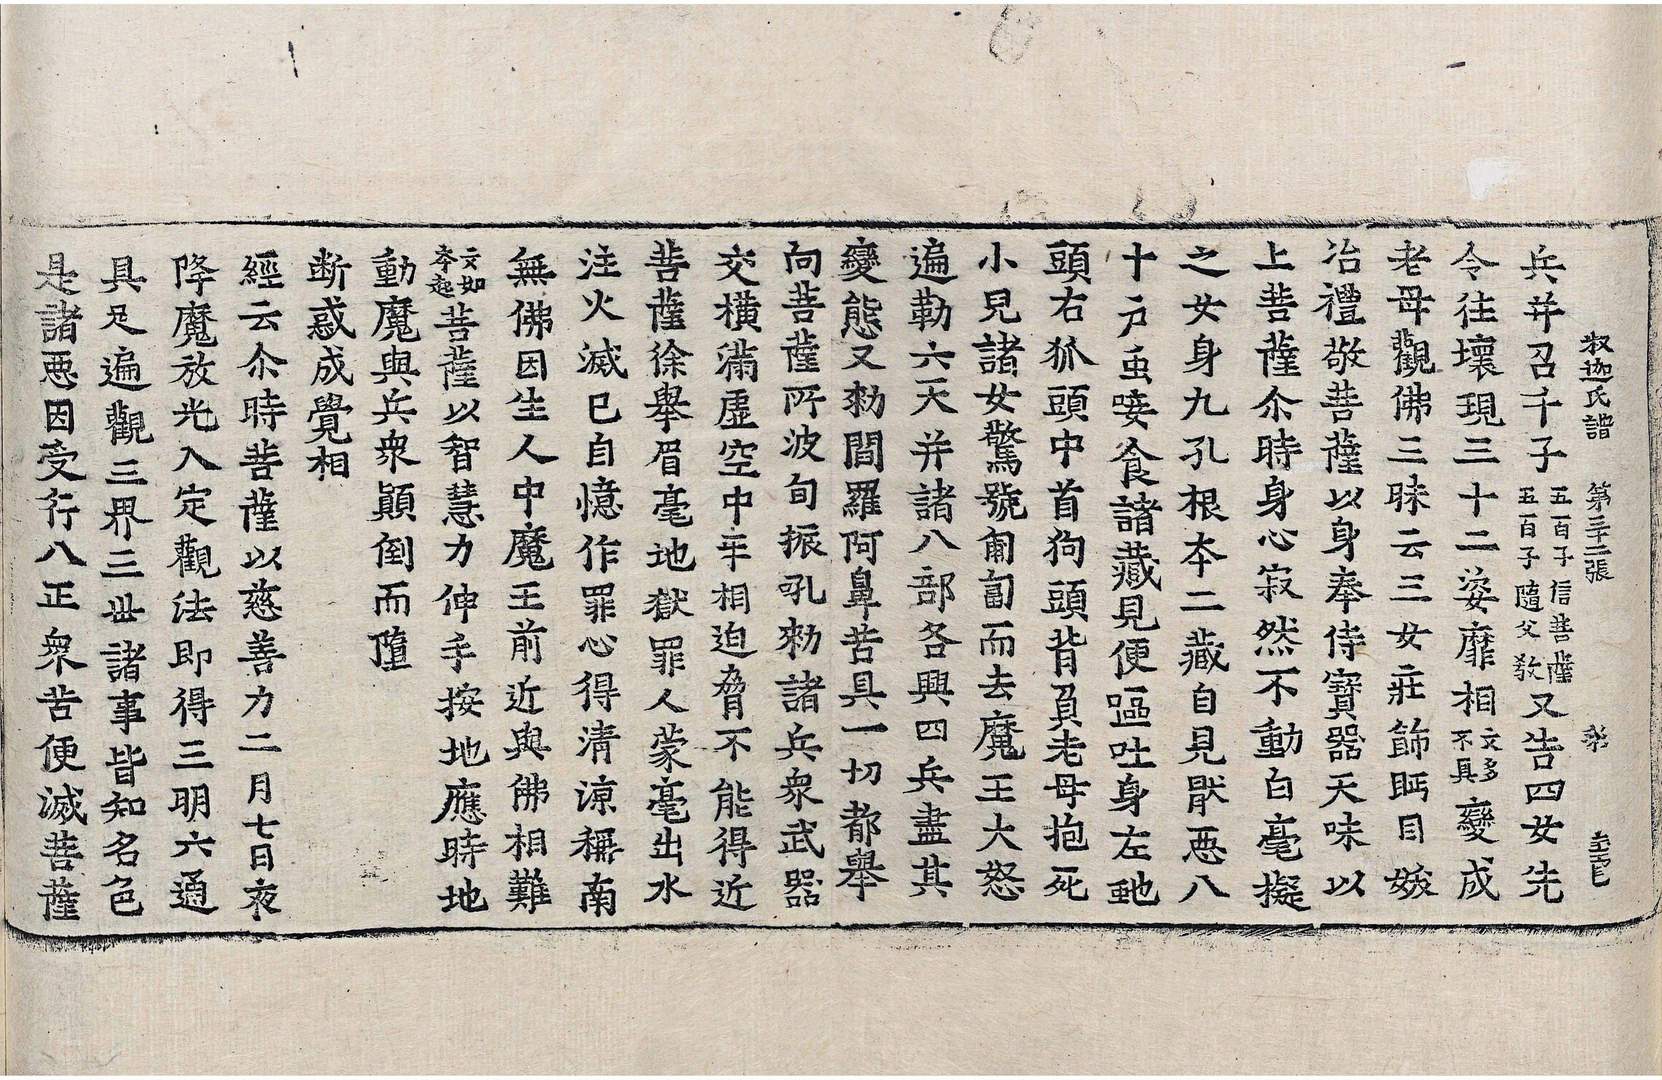 釈迦氏譜 第二十二張
兵并召千子五百子信菩薩五百子隨父教又告四女先
令往壞現三十二姿靡相文多不具變成
老母觀佛三昧云三女莊飾眄目姣
冶禮敬菩薩以身奉侍寶器天味以
上菩薩尒時身心寂然不動白毫擬
之女身九孔根本二藏自見猒惡八
十户䖝唼食諸藏見便嘔吐身左虵
頭右狐頭中首狗頭背負老母抱死
小兒諸女驚號匍匐而去魔王大怒
遍勒六天并諸八部各興四兵盡其
變態又勑閻羅阿鼻苦具一切都舉
向菩薩所波旬振吼勑諸兵衆武器
交橫滿虛空中平相迫脅不能得近
菩薩徐舉眉毫地獄罪人蒙毫出水
注火滅已自憶作罪心得清涼稱南
無佛因生人中魔王前近與佛相難
文如本起菩薩以智慧力伸手按地應時地
動魔與兵衆顛倒而墮
断惑成覺相
經云尒時菩薩以慈善力二月七日夜
降魔放光入定觀法即得三明六通
具足遍觀三界三世諸事皆知名色
是諸惡因受行八正衆苦便滅菩薩